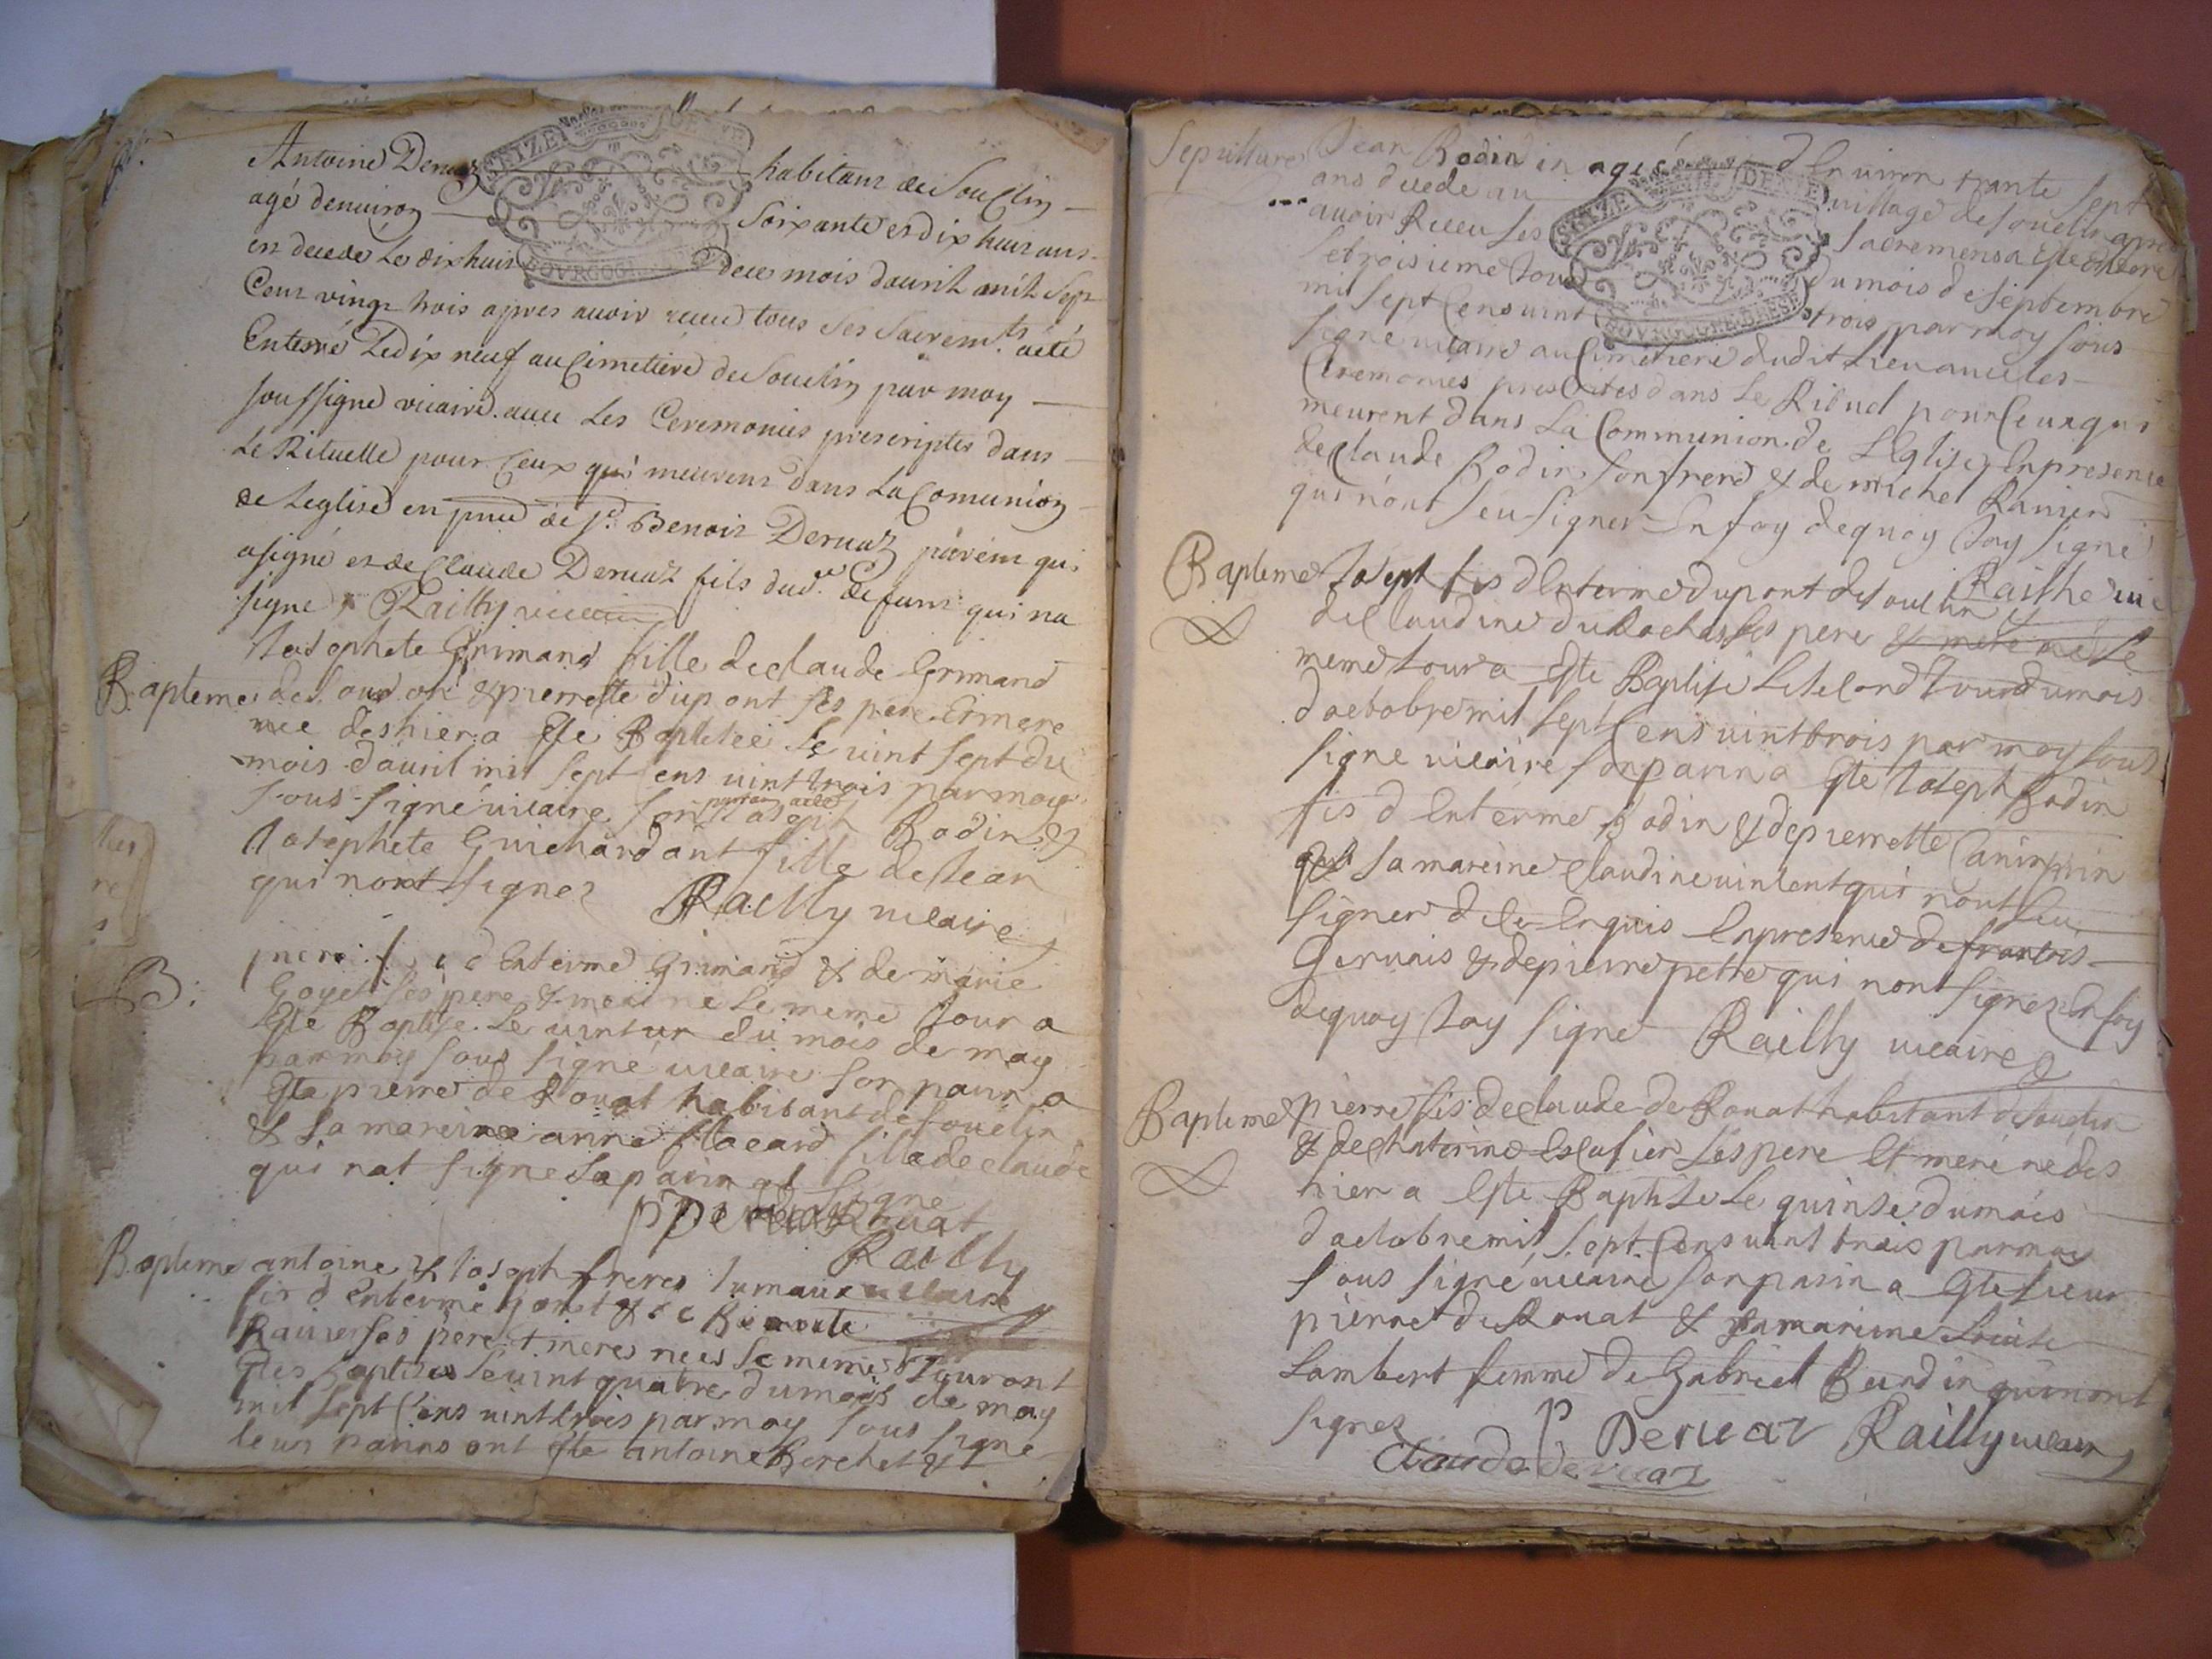 Antoine Deruaz habitant de Souclin
agé denuiron soixante et dix huit ans
est decede Le dix huit dece mois dauril mil sept
Cent vingt trois apres auoir receu tous ses sacremts. a été
Enterré Le dix neuf au Cimetiere de Souclin par moy
soussigné vicaire auec Les Ceremonies prescriptes dans
Le Rituelle pour Ceux qui meurent dans La Comunion
de Leglise en de Benoit Deruaz qui
a signé et de Claude Deruaz fils dud. defunt qui na
signé Railly
Iosephete Grimand fille de claude Grimand
Bapteme de & pierrette dupont ses pere Et mere
nee deshier a Esté Baptisée Le uint sept du
mois d'auril mil sept Cens uint trois par moy
sous-signé uicaire son Bodin &
Iosephete Guichardant fille de Iean
qui nont signez Railly uicaire
B: d Enterme Grimand & de marie
Goyet ses pere & mere ne Le meme Iour a
Esté Baptise Le uint un du mois de may
par moy sous signé uicaire son parin a
Este pierre de Rouat habitant de souclin
& Sa mareine anne flocard fille de claude
qui nat signe Le parin at signe
Railly
Bapteme antoine & Ioseph freres Iumaux uicaire
fis d Enterme &
Rauier ses pere et mere nees Le meme Iour ont
Estes Baptises Le uint quatre du mois de may
mil sept Cens uint trois par moy sous signé
leurs parins ont Esté antoine Berchet &
Sepulture Iean Bodin agé d Enuiron trante sept
ans decede au uillage de souclin apres
auoir Receu ses sacremens a Este Enterre
Le troisieme Iour du mois de septembre
mil sept Cens uint trois par moy sous
signé uicaire au Cimetiere dudit Lieu auec les
Ceremonies prescrites dans Le Rituel pour Ceux qui
meurent dans La Communion de L Eglise En presence
de Claude Bodin son frere & de michel Rauier
qui n'ont seu signer En foy dequoy Iay signé
Bapteme Ioseph fis d Enterme dupont de souclin Railly uic
de Claudine duRochas ses pere & mere né Le
meme Iour a Esté Baptise Le second Iour du mois
d'octobre mil sept Cens uint trois par moy sous
signe uicaire son parin a Este Ioseph Bodin
fis d Enterme Bodin & de pierrette
sa mareine Claudine uincent qui nont seu
signer de ce Enquis En presence de francois
Geruais & de pierre pette qui nont signez En foy
dequoy Iay signé Railly uicaire
Bapteme pierre fis de claude de Rouat habitant de souclin
& de Chaterine Escusier ses pere Et mere né des
hier a Esté Baptise Le quinse du mois
d'octobre mil sept Cens uint trois par moy
sous signé uicaire son parin a Este sieur
pierre de Rouat & sa mareine
Lambert femme de Gabriel Burdin qui nont
signez P Deruaz Railly uicaire
Claude Deruaz